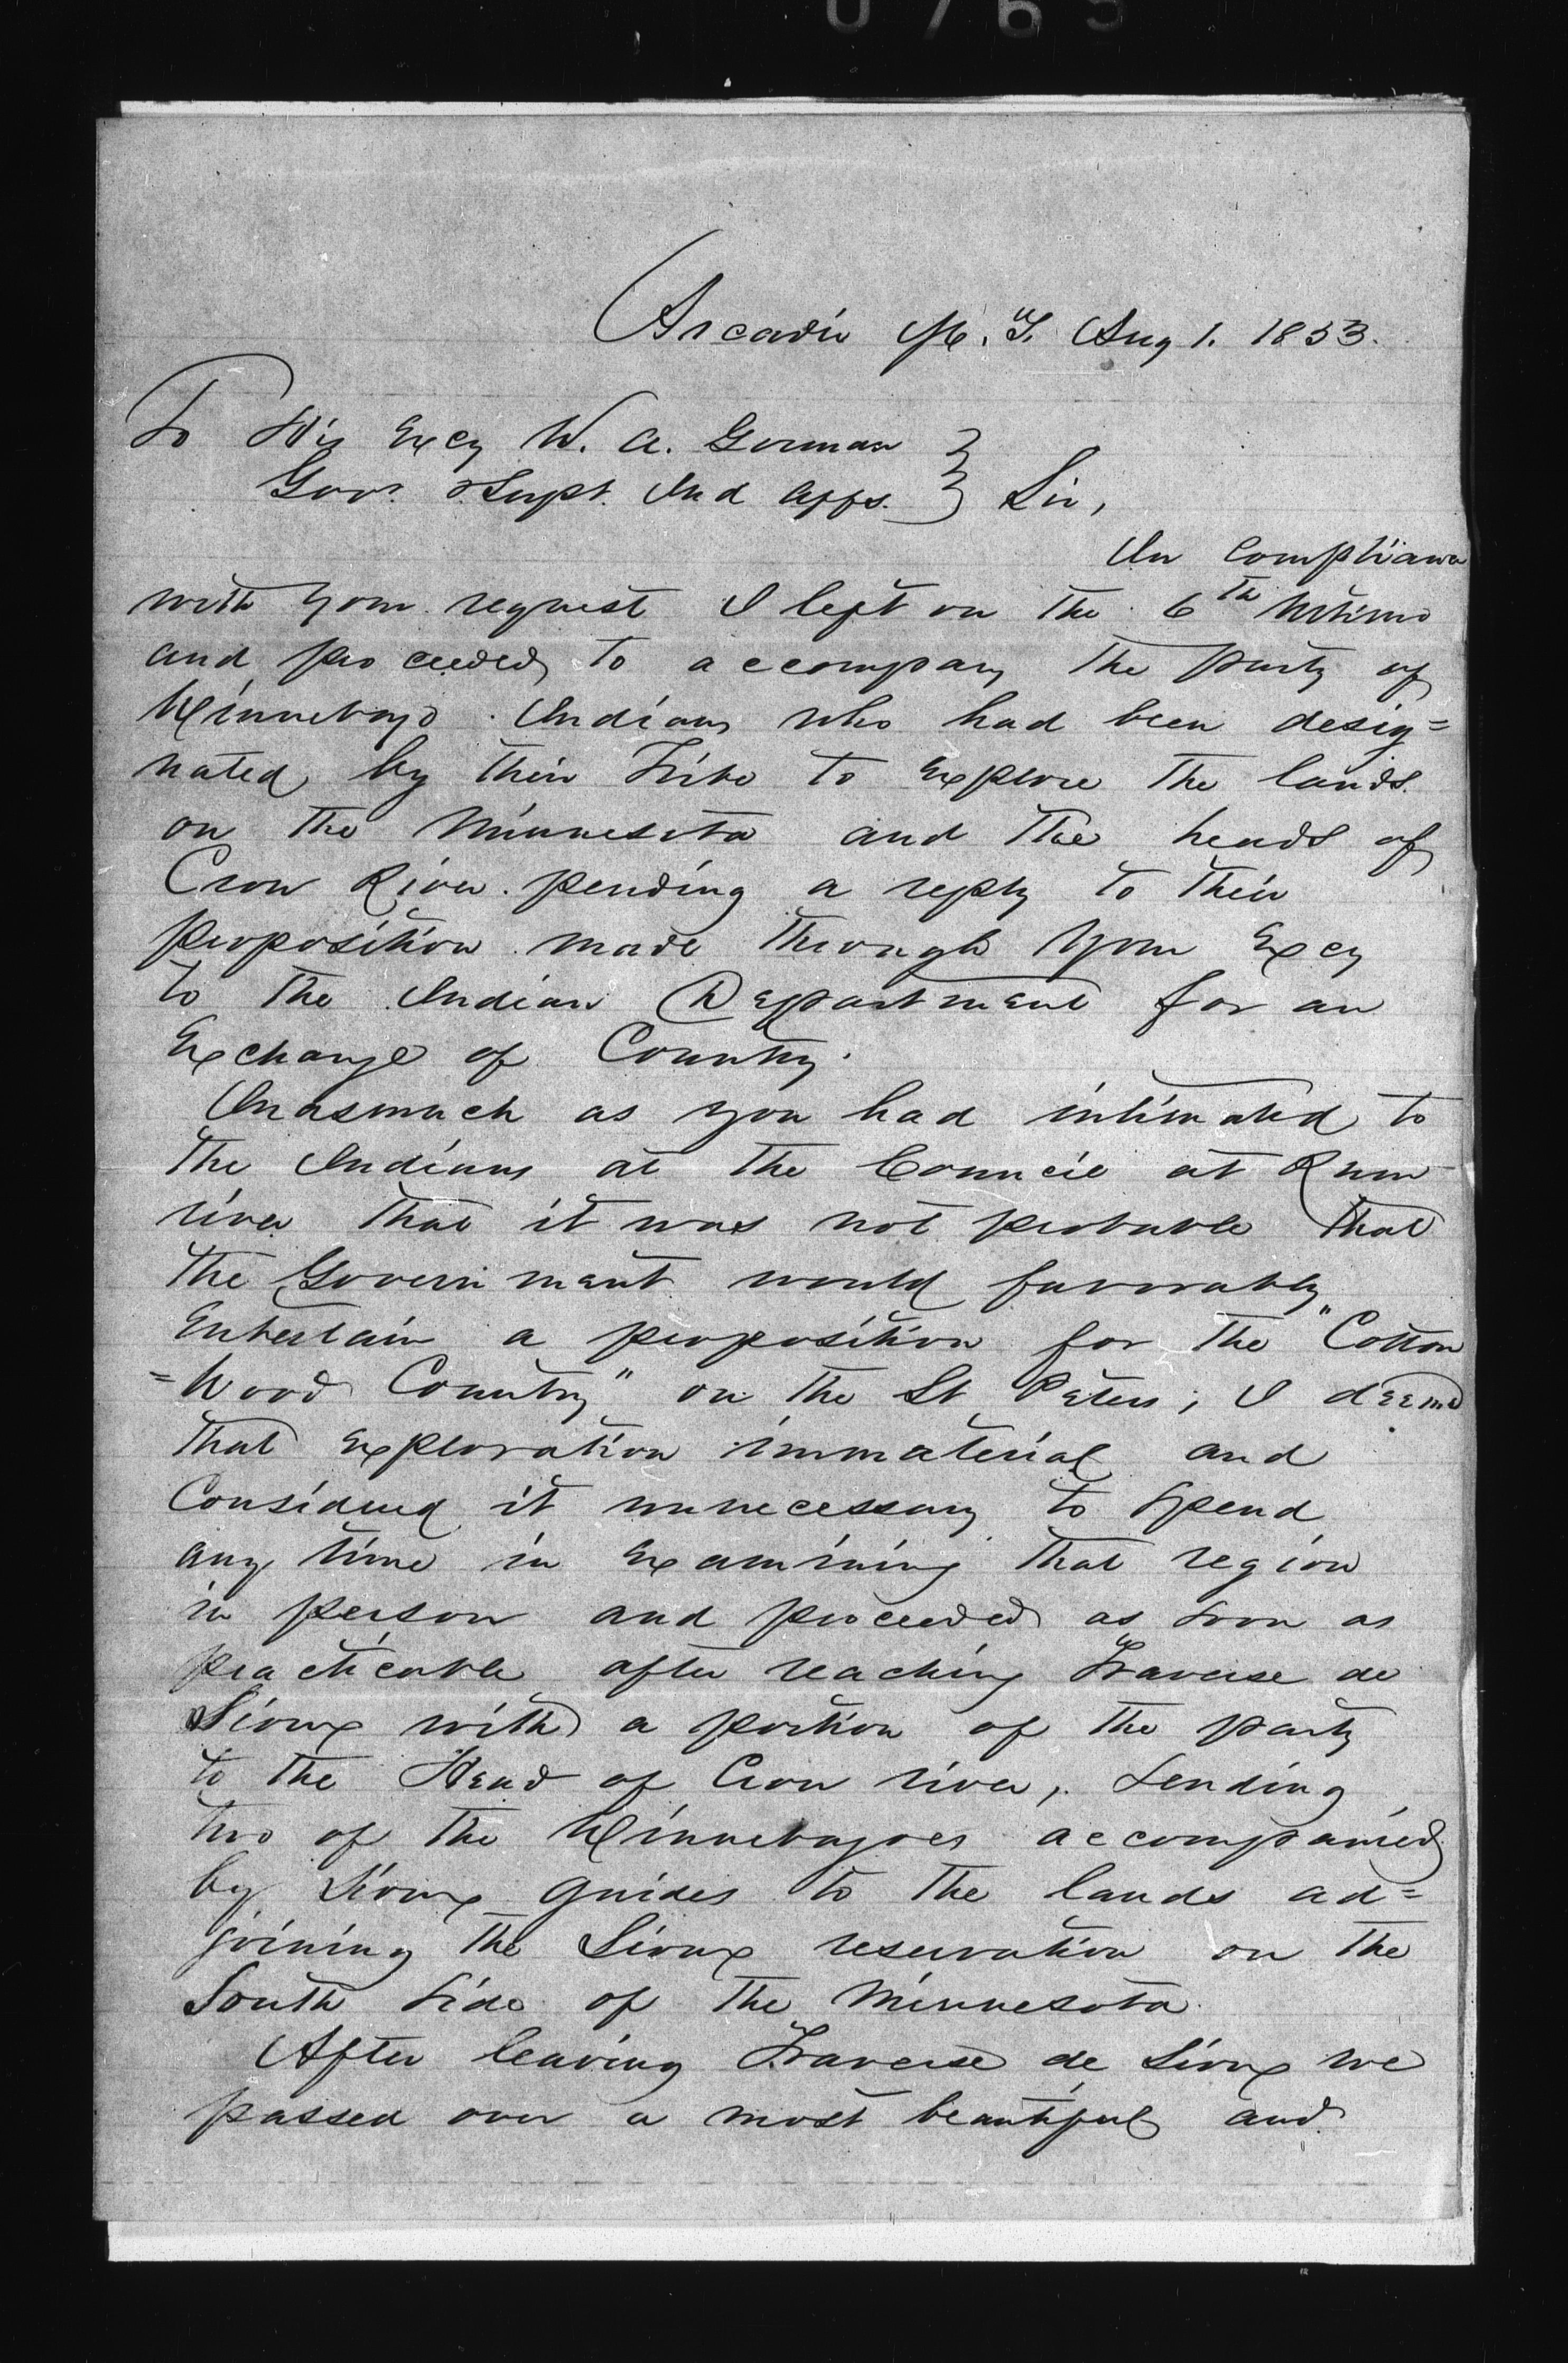 0765
Arcadia M. T. Aug 1. 1853.
To His Excy W. A. Gorman
Govr. & Supt. Ind Affs. } Sir,
In compliance
with your request I left on the 6th Ultimo
and proceeded to accompany the party of
Winnebago Indians who had been desig=
nated by their Tribe to explore the lands
on the Minnesota and the heads of
Crow River pending a reply to their
proposition made through your Excy
to the Indian Department for an
Exchange of Country.
Inasmuch as you had intimated to
the Indians at the Council at Rum
river that it was not probable that
the Government would favorably
Entertain a proposition for the "Cotton
=Wood Country" on the St Peters; I deemed
that exploration immaterial and
Considered it unnecessary to spend
any time in examining that region
in person and proceeded as soon as
practicable after reaching Traverse de
Sioux with a portion of the party
to the Head of Crow river, sending
two of the Winnebagoes accompanied
by Sioux guides to the lands ad=
joining the Sioux reservation on the
South side of the Minnesota.
After leaving Traverse de Sioux we
passed over a most beautiful and